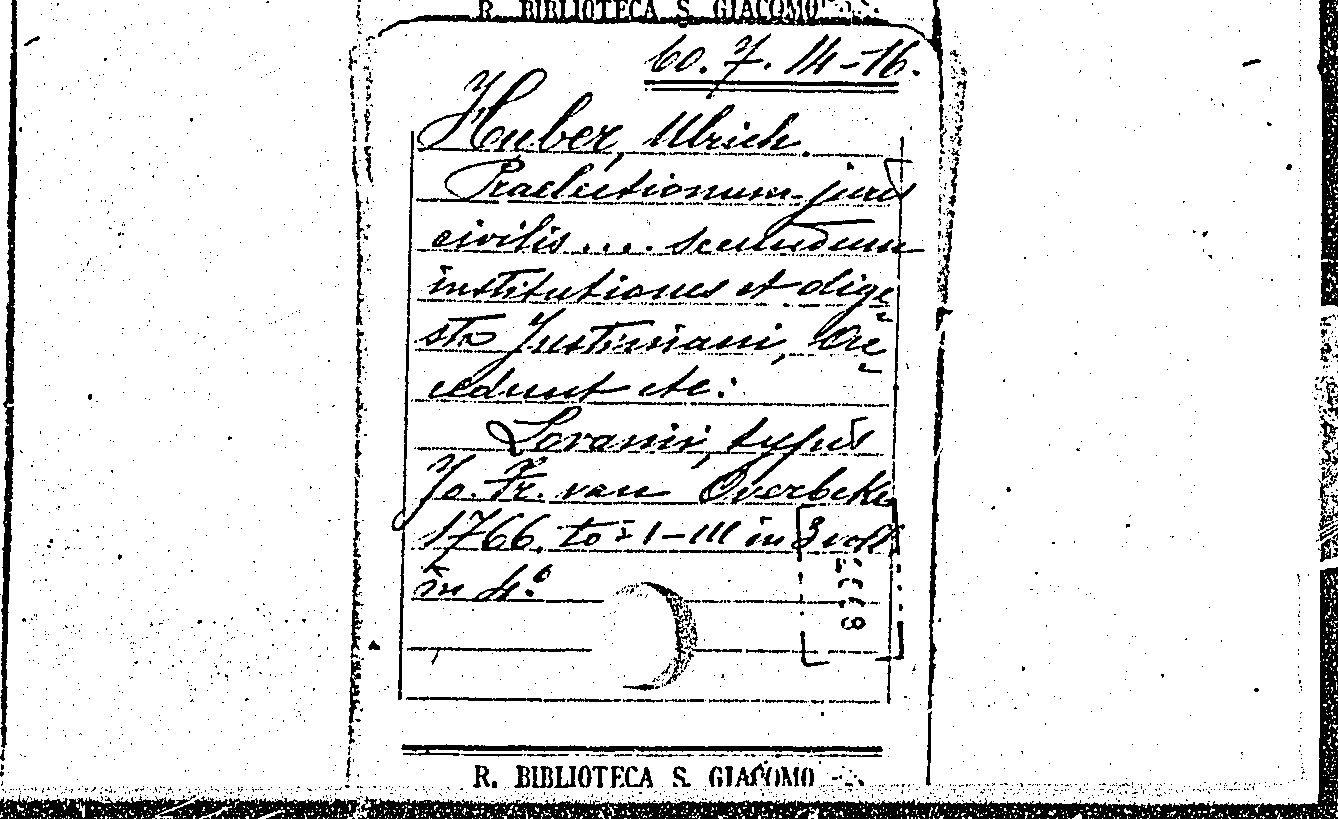 R. BIBLIOTECA S. GIACOMO
60. 7. 14-16.
Huber, Ulrich.
Praelectionum juris
civilis .... secundum
institutiones et dige=
sta Justiniani, Ac=
cedunt etc:
Lovanii, typis
Jo. Fr. van Overbeke
1766. to: I-III in 3 voll
in 4.º
R. BIBLIOTECA S. GIACOMO